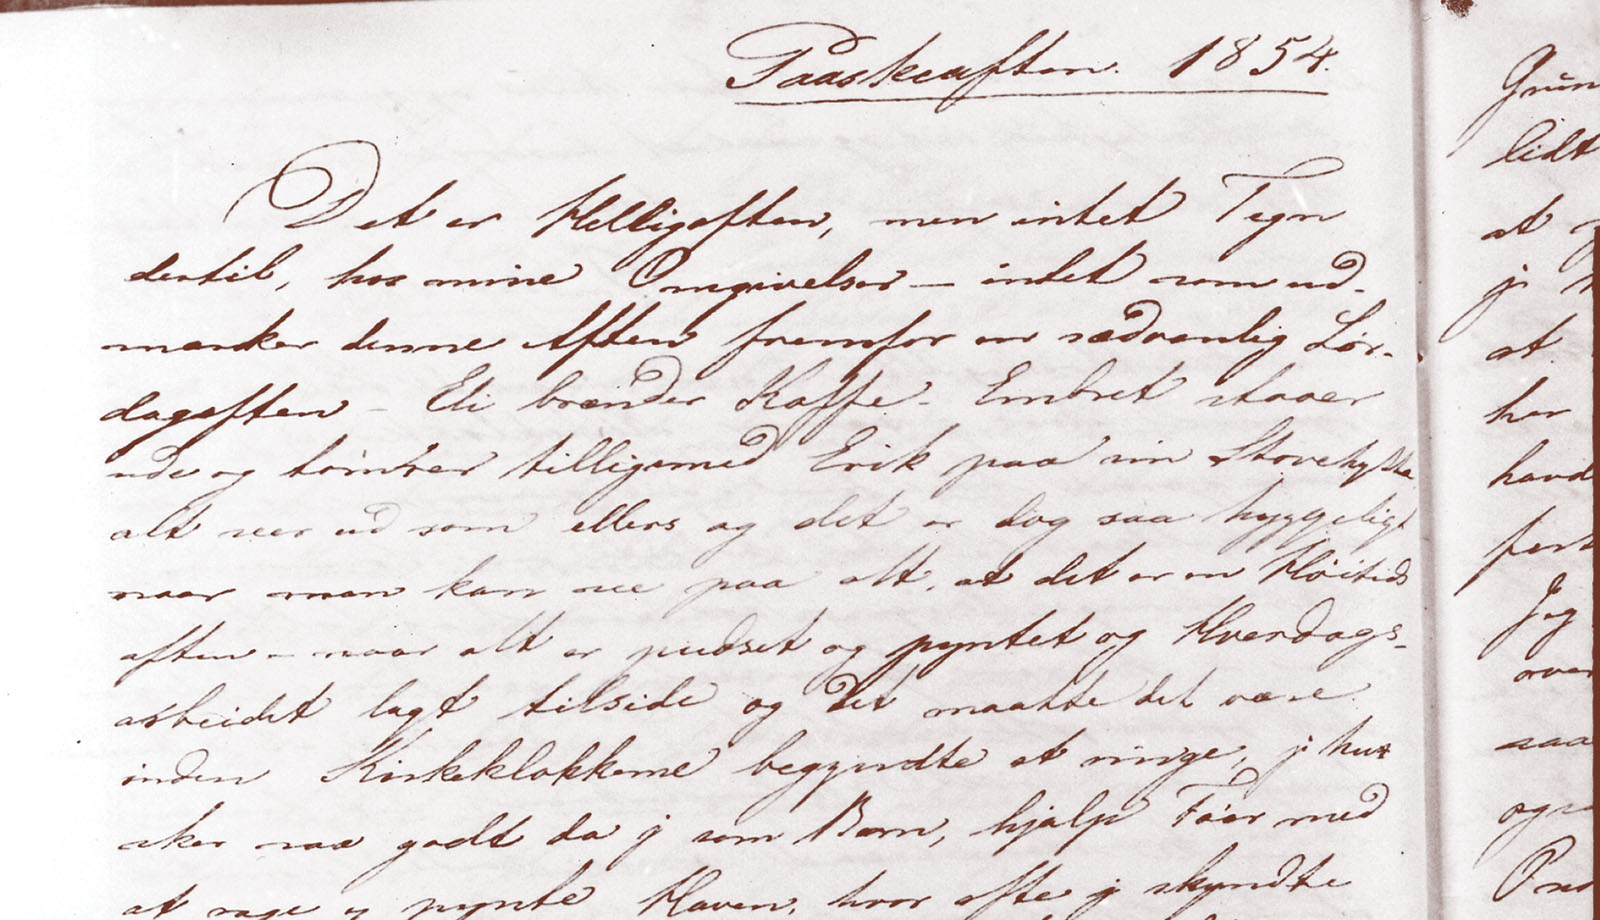 Paaskeaften. 1854.
Det er Helligaften, men intet Tegn
dertil, hos mine Omgivelser – intet som ud-
mærker denne Aften fremfor en sædvanlig Lør-
dagaften – Eli brænder Kaffe – Embret staaer
ude og tømrer tilligemed Erik paa sin
alt seer ud som ellers og det er dog saa hyggeligt
naar man kan see paa alt, at det er en Høitids
aften – naar alt er pudset og pyntet og Hverdags-
arbeidet lagt tilside og det maatte det være
inden Kirkeklokkerne begyndte at ringe, j hu
sker saa godt da j som Barn, hjalp Faer med
at rage og pynte Haven, hvor ofte j skyndte
Grün
lidt
at
j
at
her
havd
Jeg
over
saa
ogsa